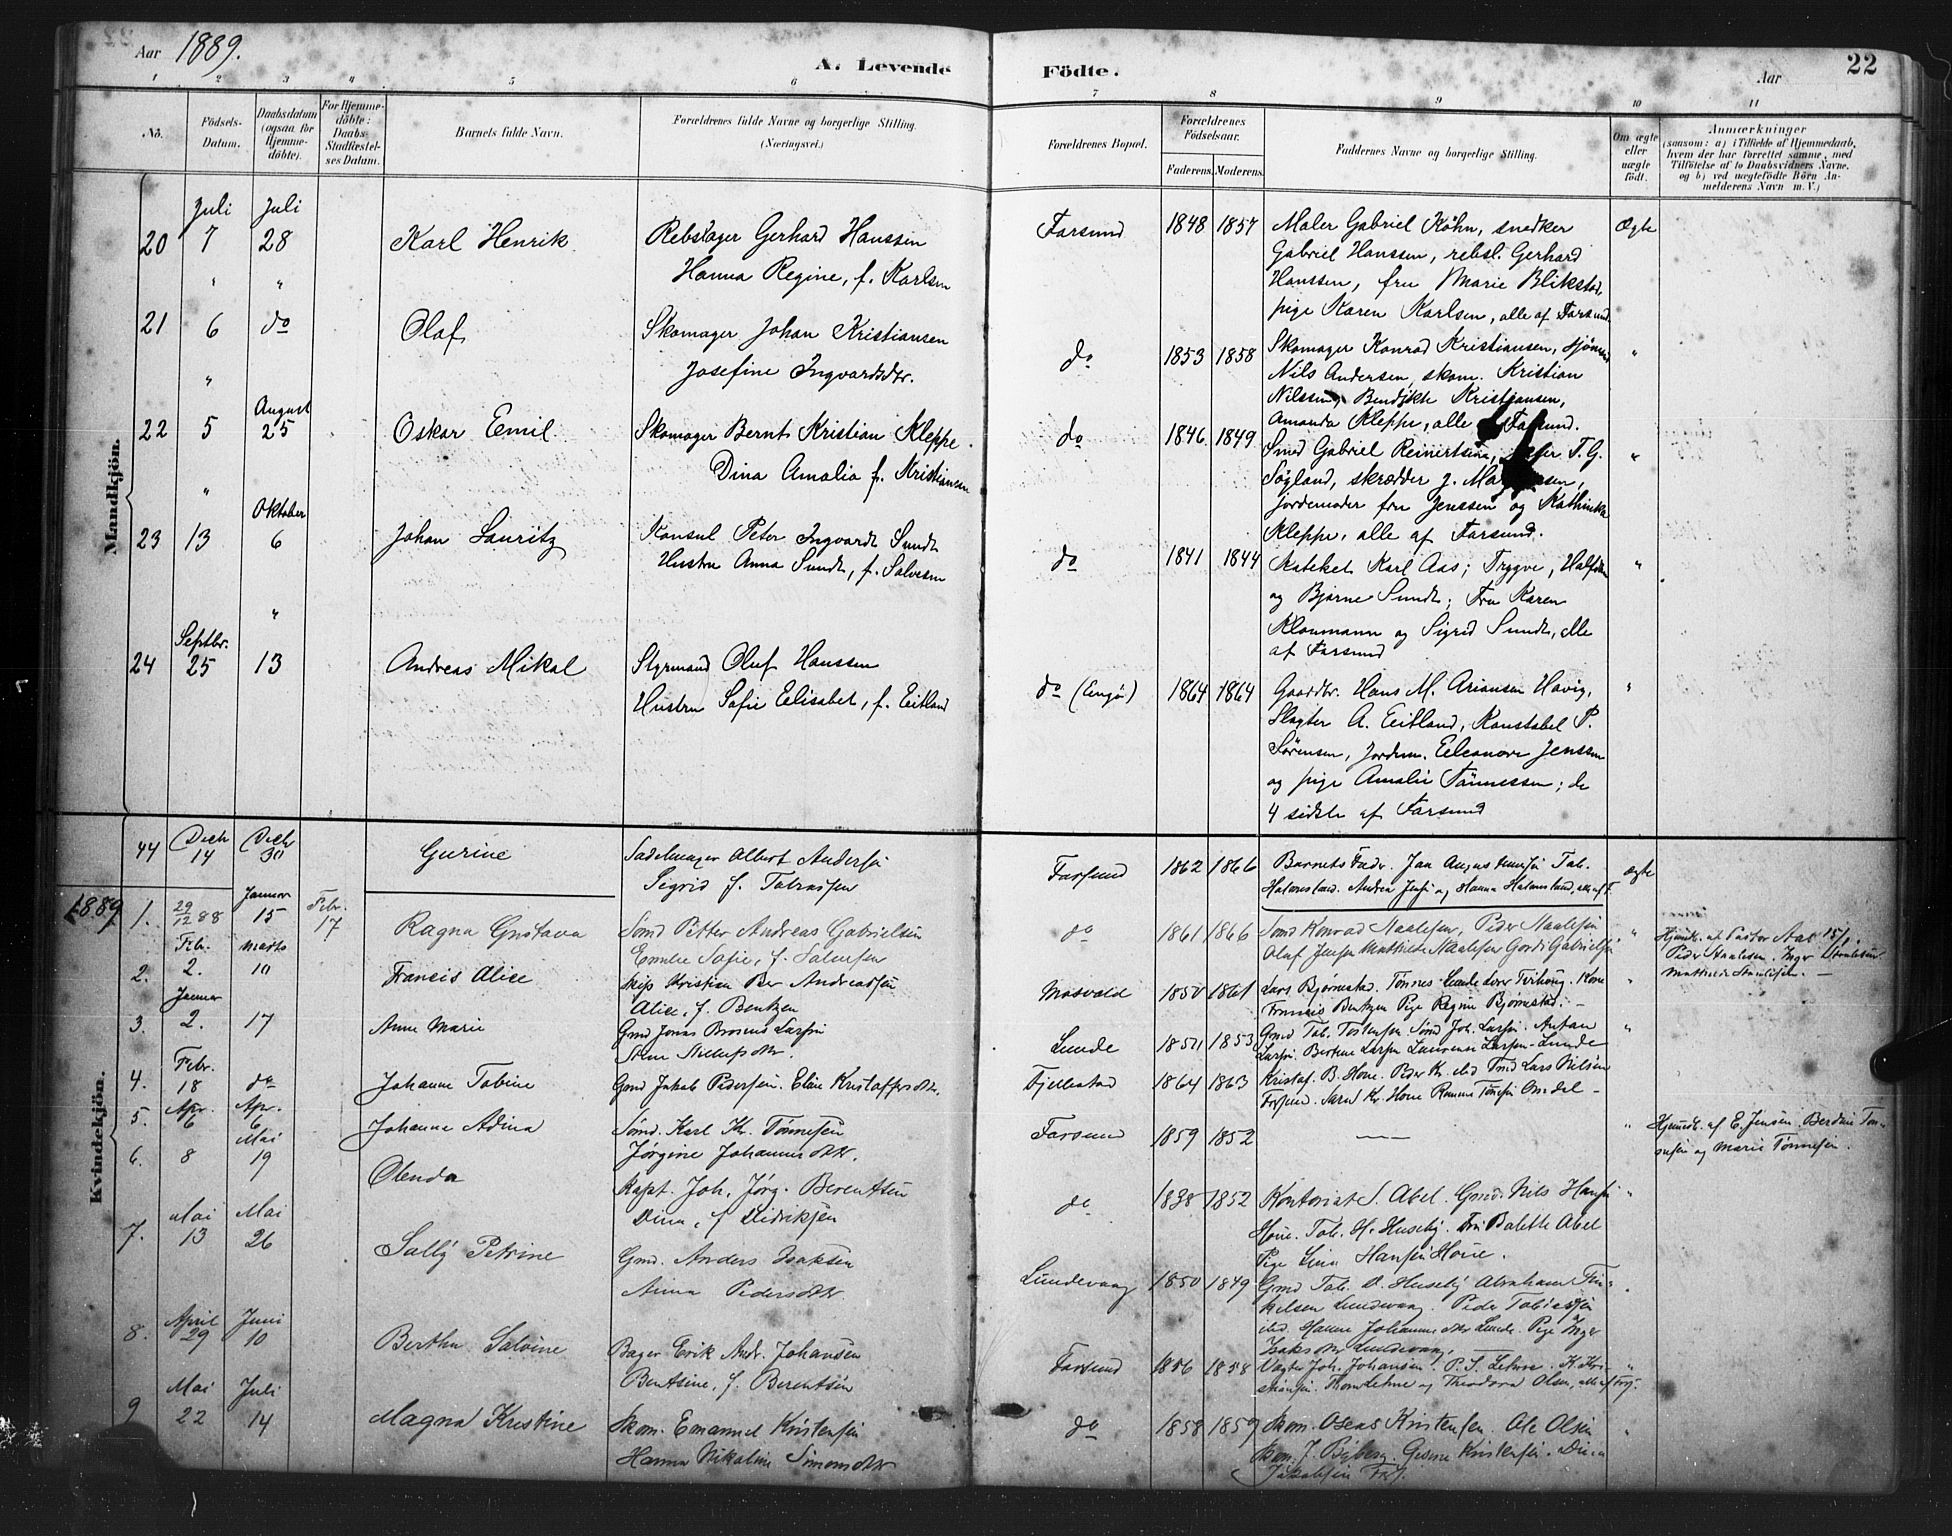 Aar 1889.
A. Levende Födte.
Aar
22
1 2 3 4 5 6 7 8 9 10 11
No.
Födsels-Datum.
Daabsdatum (ogsaa for Hjemme-döbte).
For Hjemme-döbte: Daabs-Stadfæstel-ses Datum.
Barnets fulde Navn.
Forældrenes fulde Navne og borgerlige Stilling. (Næringsvei.)
Forældrenes Bopæl.
Forældrenes Födselsaar.
Faderens. Moderens.
Faddernes Navne og borgerlige Stilling.
Om ægte eller uægte födt.
Anmærkninger
(saasom: a) i Tilfælde af Hjemmedaab,
hvem der har forrettet samme, med
Tilföielse af to Daabsvidners Navne.
og b) ved uægtefödte Börn An-
melderens Navn m. V.)
Mandkjön.
Juli Juli
20 7 28 Karl Henrik Rebslager Gerhard Hanssen
Hanna Regine, f. Karlsen
Farsund 1848 1857 Maler Gabriel Köhn, snedker
Gabriel Hanssen, rebsl. Gerhard
Hanssen, fru Marie Blikstad,
pige Karen Karlsen, alle af Farsund.
Ægte
21 6 do Olaf Skomager Johan Kristiansen
Josefine Ingvardsdtr.
do 1853 1858 Skomager Konrad Kristiansen,
Nils Andersen, skom. Kristian
Nilssen, Bendikte Kristiansen,
Amanda Kleppe, alle af Farsund.
"
August
22 5 25 Oskar Emil Skomager Bernt Kristian Kleppe.
Dina Amalia f. Kristiansen
do 1846 1849 Smed Gabriel Reinertsen, T. G.
Søgland, skrædder J.
jordemoder fru Jenssen og Kathinka
Kleppe, alle af Farsund.
"
Oktober
23 13 6 Johan Lauritz Konsul Peter Ingvardt Sundt
Hustru Anna Sundt, f. Salvesen
do 1841 1844 Kateket Karl Aas; Trygve, Halfdan
og Bjarne Sundt; Fru Karen
Kloumann og Sigrid Sundt, alle
af Farsund
"
Septbr.
24 25 13 Andreas Mikal Styrmand Oluf Hanssen
Hustru Sofie Elisabet, f. Eitland
do 1864 1864 Gaardbr. Hans M. Ariansen Havig,
Slagter A. Eitland, Konstabel P.
Sørensen, Jordm. Eleanore Jenssen
og pige Amalie Tønnessen; de
4 sidste af Farsund
"
Kvindekjön.
44 Decb 14 Decb 30 Gurine Sadelmager Albert Andersen
Sigrid f. Tobiassen
Farsund 1862 1866 Barnets Fader. Jan
Halvorsland. Andrea Jensen og Hanna Halvorsland, alle af F.
Ægte
1889
1. 29/12 88 Januar 15 Febr. 17 Ragna Gustava Sømd Petter Andreas Gabrielsen
Emelie Sofie, f.
do 1861 1866 Sømd Konrad Staalesen, Peder Staalesen
Oluf Jensen Mathilde Staalesen Gabrielsen
"
Hjemdb. af Pastor Aas 15/1.
Peder Staalesen. Inger Staalesen
Mathilde Staalesen. —
Febr. Marts
2. 2. 10 Francis Alice Skip Kristian Ber Andreassen
Alice, f. Bentzen
Mosvold 1850 1861 Lars Bjørnestad. Tønnes Lunde
Bentzen Pige Regine Bjørnestad. —
"
Januar
3. 2. 17 Anne Marie Gmd Jonas Larsen
Lunde 1853 Gmd Tob. Sømd Joh. Larsen. Anton
Larsen. Bertine Larsen Laurense Larsen - Lunde
"
Febr.
4. 18 do Johanne Tobine Gmd Jakob Pedersen. Eline Kristoffersdtr.
Fjellestad 1864 1863 Kristof. B. Hove. Peder K. Lars Nilsen
"
Apr. Apr.
5. 6 6 Johanne Adina Sømd. Karl Kr. Tønnesen
Jørgine Johannesdtr.
Farsund 1859 1852 ——
" Hjemdb. af E. Jensen Berdine Tøn-
nesen og Marie Tønnesen.
Mai
6. 8 19 Olenda Kapt. Joh. Jørg. Berentsen
Dina, f Didriksen
do 1838 1852 Kontorist S. Abel. Gmd. Nils Hansen
Hove. Tob. H. Huseby. Fru Bolette Abel
Pige Lina Hansen Hove.
"
Mai Mai
7. 13 26 Sally Petrine Gmd. Anders Isaksen
Anna Pedersdtr.
Lundevaag 1850 1849 Gmd Tob. O. Huseby Abraham Tor-
kelsen Lundevaag. Peder Tobiassen
Hanne Johannesdtr Lunde. Pige Inger
Isaksdtr Lundevaag.
April Juni
8. 29 10 Bertha Salvine Bager Erik Andr. Johansen
Bentsine, f. Berentsen
Farsund 1856 1858 Vægter Joh. Johansen. P. S. Lehne. K. Kri-
stiansen. Lehne og Theodora Olsen, alle af Fars.
"
Mai Juli
9 22 14 Magna Kristine Skom. Emanuel Kristensen
Hanna Nikoline Simonsdtr
do 1858 1859 Skom. Oseas Kristensen Ole Olsen
Skom. J. Byberg. Gesine Kristensen. Dina
Jakobsen Fars.
"